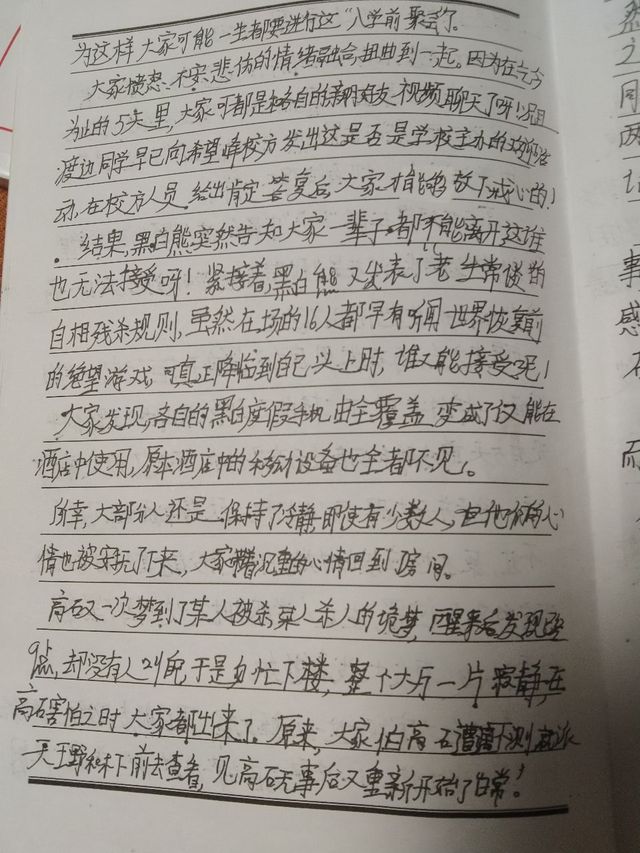 为这样大家可能一生都要进行这"入学前聚会"了。
大家愤怒、不安、悲伤的情绪融合,扭曲到一起。因为在迄今
为止的5天里,大家可都是和各自的亲朋好友视频聊天了呀!况且
渡边同学早已向希望峰校方发出这是否是学校主办的
动,在校方人员给出肯定答复后,大家才能够放下戒心的!
结果,黑白熊突然告知大家一辈子都不能离开这谁
也无法接受呀!紧接着,黑白熊又发表了老生常谈的
自相残杀规则,虽然在场的16人都早有听闻世界恢复前
的绝望游戏,可真正降临到自己头上时,谁又能接受呢!
大家发现,各自的黑白度假手机由全覆盖变成了仅能在
酒店中使用,原本酒店中的移动设备也全都不见了。
所幸,大部分人还是保持了冷静,即使有少数人,但他们的心
情也被安抚了下来,大家带着沉重的心情回到房间。
高石又一次梦到了某人被杀,某人杀人的境梦,醒来后发现到
9点,却没有人叫他,于是匆忙下楼,整个大厅一片寂静,在
高石害怕之时,大家都出来了。原来,大家怕高石遭遇不测就派
天王野和木下前去查看,见高石无事后又重新开始了日常。
然
之
同
两
事
感
而